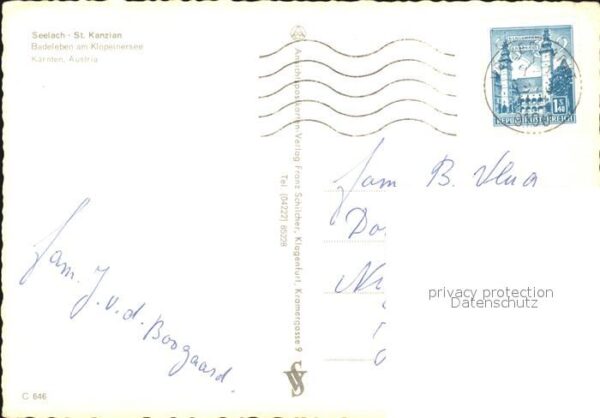 Seelach - St. Kanzian
Badeleben am Klopeinersee
Kärnten, Austria
Ansichtspostkarten-Verlag Franz Schilcher, Klagenfurt, Kramergasse 9
Tel. (04222) 85228
1.40
REPUBLIK ÖSTERREICH
Fam. B.
Do
Fam. J. v. d. Boogaard.
privacy protection
Datenschutz
C 646